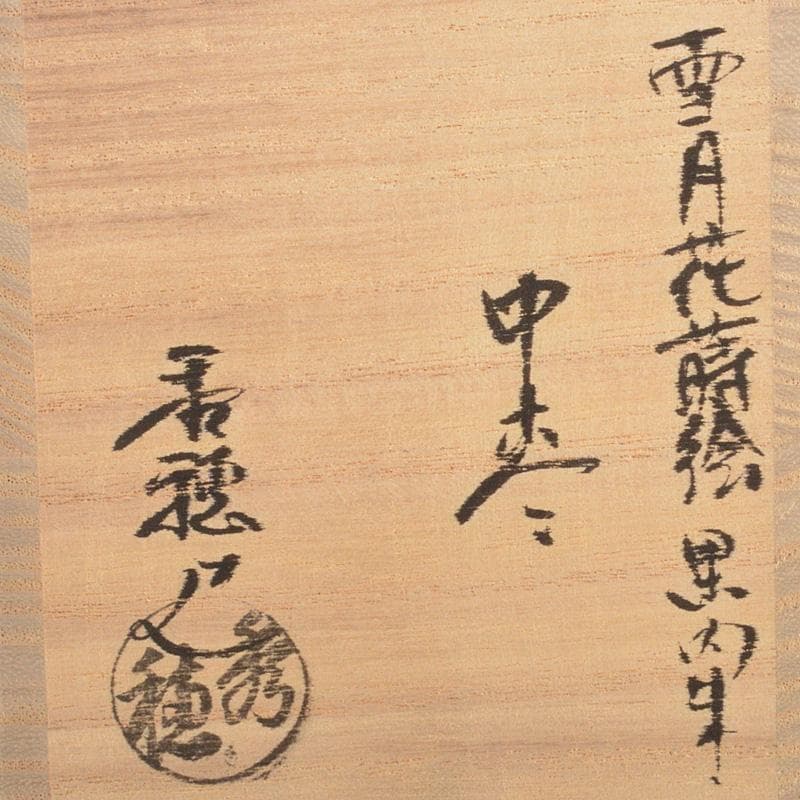 雪月花蒔絵 黒内朱
中棗
若穂造
秀穂